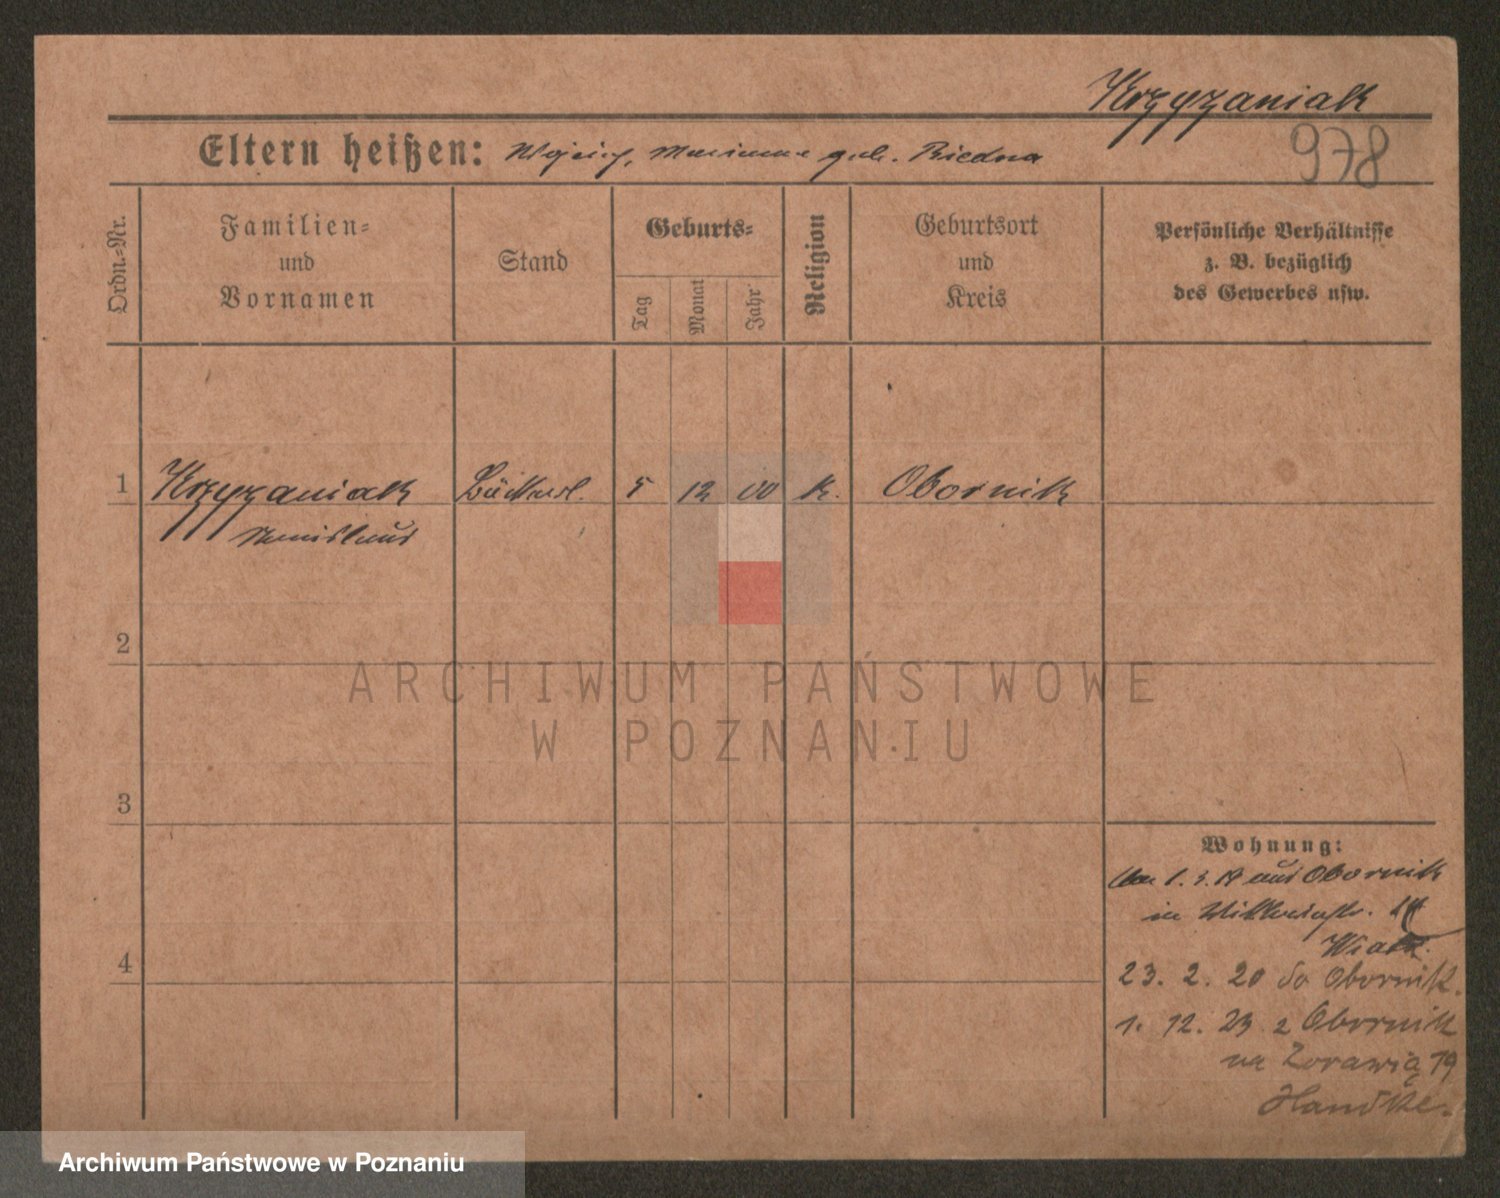 Krzyzaniak
978
Eltern heißen: Marianna geb. Biedna
Ordn.-Nr.
Familien-
und
Vornamen
Stand
Geburts-
Tag
Monat
Jahr
Religion
Geburtsort
und
Kreis
Persönliche Verhältnisse
z. B. bezüglich
des Gewerbes usw.
1 Krzyzaniak 5 12 00 k. Obornik
Stanislaus
2
3
4
Wohnung:
aus Obornik
in
Wiatr.
23. 2. 20 do Obornik.
1. 12. 23 z Obornik
na Zorawią 19
Handke.
ARCHIWUM PAŃSTWOWE
W POZNANIU
Archiwum Państwowe w Poznaniu